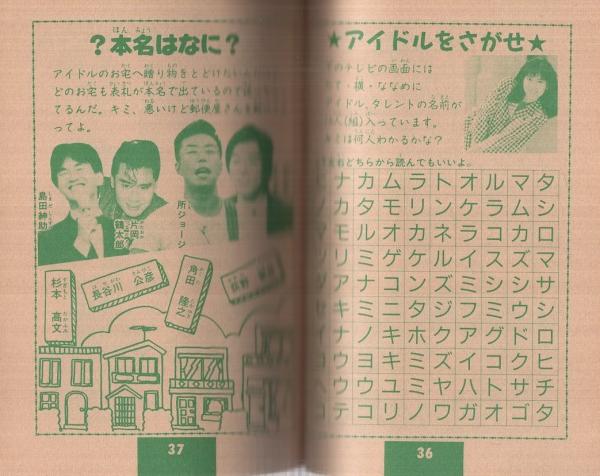 ★アイドルをさがせ★
のテレビの画面には
・横・ななめに
イドル、タレントの名前が
人(組)入っています。
は何人わかるかな?
どちらから読んでもいいよ。
ナカムラトオルマタ
カタモリンケラムシ
モルオカネラコカロ
リミゲケルイスズマ
アナコンズミシシサ
キミニタジフミウシ
ナノキホクアグドロ
ウヨキミズイコクヒ
ウウユミヤハトサチ
テコリノワガオゴタ
36
?本名はなに?
アイドルのお宅へ贈り物をとどけたい
どのお宅も表札が本名で出ているので
てるんだ。キミ、悪いけど郵便屋さんを
ってよ。
所ジョージ
片岡鶴太郎
島田紳助
角田 隆之
長谷川 公彦
杉本 高文
37